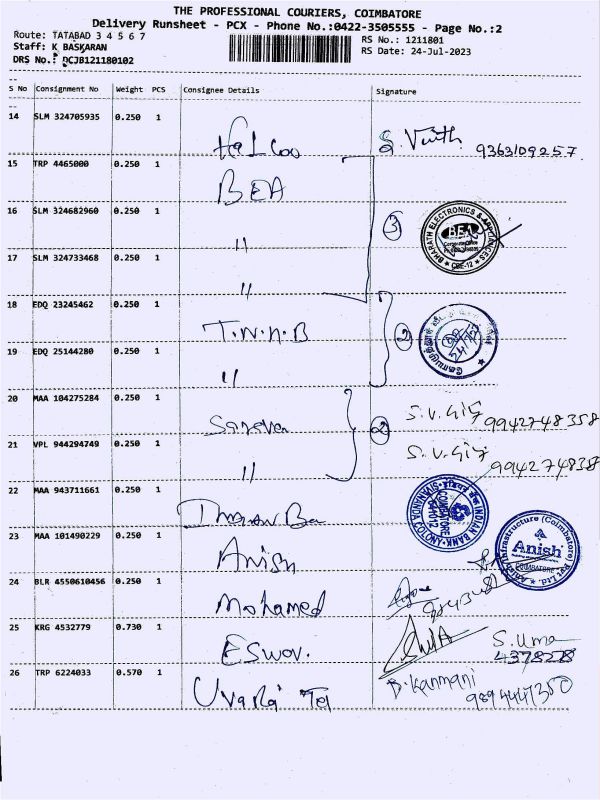 THE PROFESSIONAL COURIERS, COIMBATORE
Delivery Runsheet - PCX - Phone No.:0422-3505555 - Page No.:2
Route: TATABAD 3 4 5 6 7
Staff: K BASKARAN
DRS No.: DCJB121180102
RS No.: 1211801
RS Date: 24-Jul-2023
S No Consignment No Weight PCS Consignee Details Signature
14 SLM 324705935 0.250 1
9363109257
15 TRP 4465000 0.250 1 BEA
16 SLM 324682960 0.250 1 "
3
BHARATH ELECTRONICS & APPLIANCES
BEA
CBE-12
17 SLM 324733468 0.250 1 "
18 EDQ 23245462 0.250 1 T.N.A.B
2
19 EDQ 25144280 0.250 1 "
20 MAA 104275284 0.250 1
S.V.
9942748358
21 VPL 944294749 0.250 1 "
2
S.V.
22 MAA 943711661 0.250 1
INDIAN BANK
COIMBATORE
641012
23 MAA 101490229 0.250 1 Anish
Anish Infrastructure (Coimbatore) Pvt. Ltd.
Anish
COIMBATORE
24 BLR 4550610456 0.250 1 Mohamed
25 KRG 4532779 0.730 1
S. Uma
26 TRP 6224033 0.570 1
B. Kanmani
9894447350